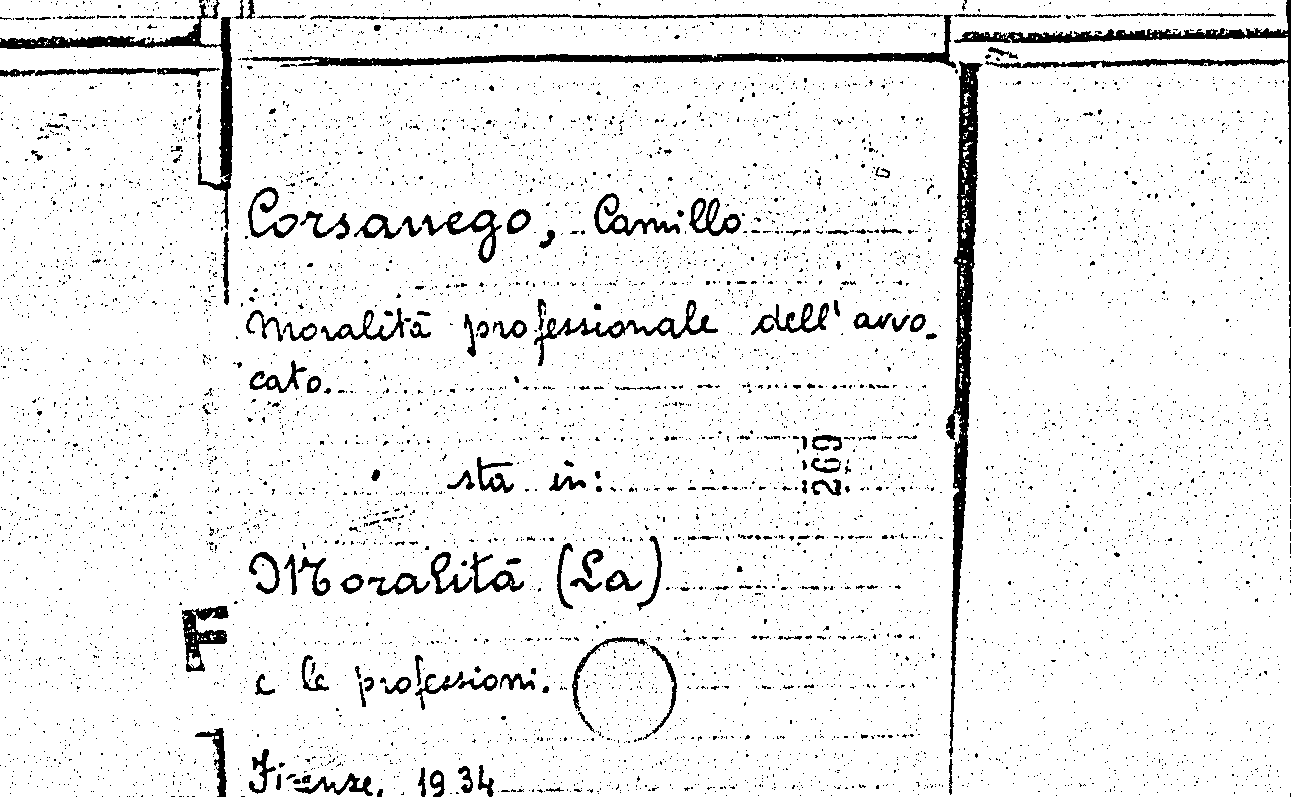 Corsanego, Camillo
Moralità professionale dell'avvo-
cato.
sta in:
269
Moralità (La)
e le professioni.
F
Firenze, 1934